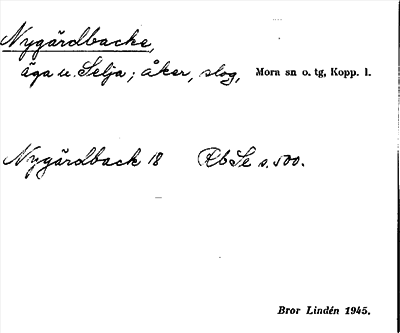 Nygårdbacke,
äga u. Selja; åker, slog, Mora sn o. tg, Kopp. l.
Nygårdback 18 RbSe s. 500.
Bror Lindén 1945.